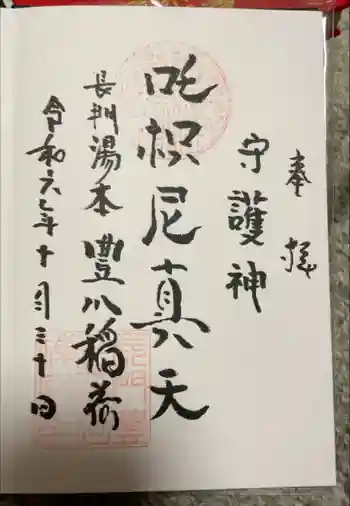 奉拝
守護神
吒枳尼真天
長門湯本 豐川稲荷
令和六年十月三十日